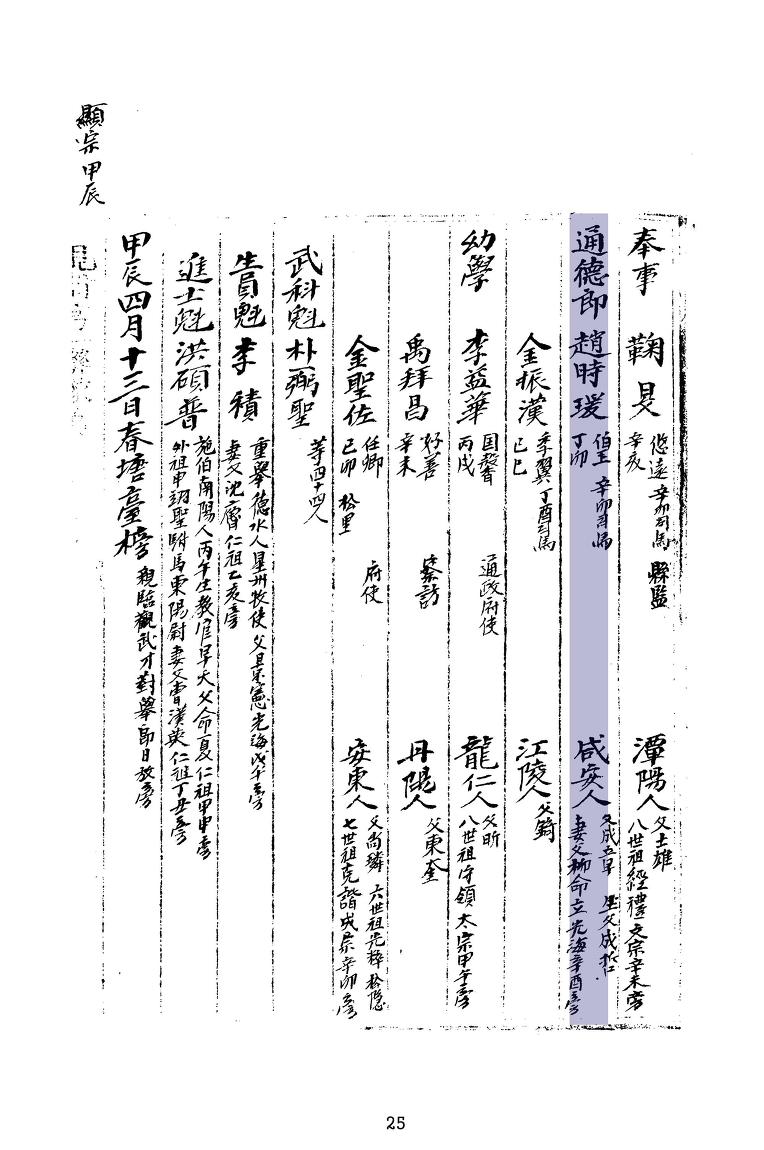 顯宗甲辰
奉事 鞠旻 悠遠 辛卯司馬 縣監 潭陽人 父士雄
辛亥 八世祖經禮 文宗辛未榜
通德郎 趙時瑗 伯玉 辛卯司馬 咸安人 父成立早 生父成哲
丁卯 妻父柳命立 光海辛酉榜
金振漢 季翼 丁酉司馬 江陵人 父錡
己巳
幼學 李益華 國馨 通政府使 龍仁人 父昕
丙戌 八世祖守領 太宗甲午榜
禹拜昌 好善 察訪 丹陽人 父東奎
辛未
金聖佐 任卿 府使 安東人 父尚鏻 六世祖光粹 松隱
己卯 松里 七世祖克諧 成宗辛卯榜
武科魁 朴弼聖 等四十四人
生員魁 李積 重擧 德水人 星州牧使 父 憲 光海戊午榜
妻父沈 仁祖乙亥榜
進士魁 洪碩普 施伯 南陽人 丙午生 教官 早夭 父命夏 仁祖甲申榜
外祖申翊聖 駙馬東陽尉 妻父曺漢英 仁祖丁丑榜
甲辰四月十三日春塘臺榜 親臨觀武才對擧 即日放榜
25